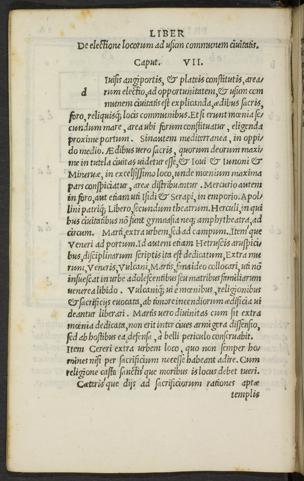 LIBER
De electione locorum ad usum communem civitatis.
Caput. VII.
d Ivisis angiportis, & plateis constitutis, area⸗
rum electio, ad opportunitatem, & usum com
munem civitatis est explicanda, ædibus sacris,
foro, reliquisq; locis communibus. Et si erunt mœnia se⸗
cundum mare, area ubi forum constituatur, eligenda
proxime portum. Sin autem mediterranea, in oppi⸗
do medio. Aedibus vero sacris, quorum deorum maxi⸗
me in tutela civitas videtur esse, & Iovi & Iunoni &
Minervæ, in excelsissimo loco, unde mœnium maxima
pars conspiciatur, areæ distribuantur. Mercurio autem
in foro, aut etiam uti Isidi & Serapi, in emporio. Apol⸗
lini patriq; Libero, secundum theatrum. Herculi, in qui
bus civitatibus nõ sunt gymnasia neq; amphitheatra, ad
circum. Marti, extra urbem, sed ad campum. Item que
Veneri ad portum. Id autem etiam Hetruscis aruspici⸗
bus, disciplinarum scriptis ita est dedicatum, Extra mu
rum, Veneris, Vulcani, Martis, fana ideo collocari, uti nõ
insuescat in urbe adolescentibus seu matribus familiarum
venerea libido. Vulcaniq; vi e mœnibus, religionibus
& sacrificijs evocata, ab timore incendiorum ædificia vi
deantur liberari. Martis vero divinitas cum sit extra
mœnia dedicata, non erit inter cives armigera dissensio,
sed ab hostibus ea defensa, à belli periculo conservabit.
Item Cereri extra urbem loco, quo non semper ho⸗
mines nisi per sacrificium necesse habeant adire. Cum
religione caste sanctisq́ue moribus is locus debet tueri.
Cæteris que dijs ad sacrificiorum rationes aptæ
templis